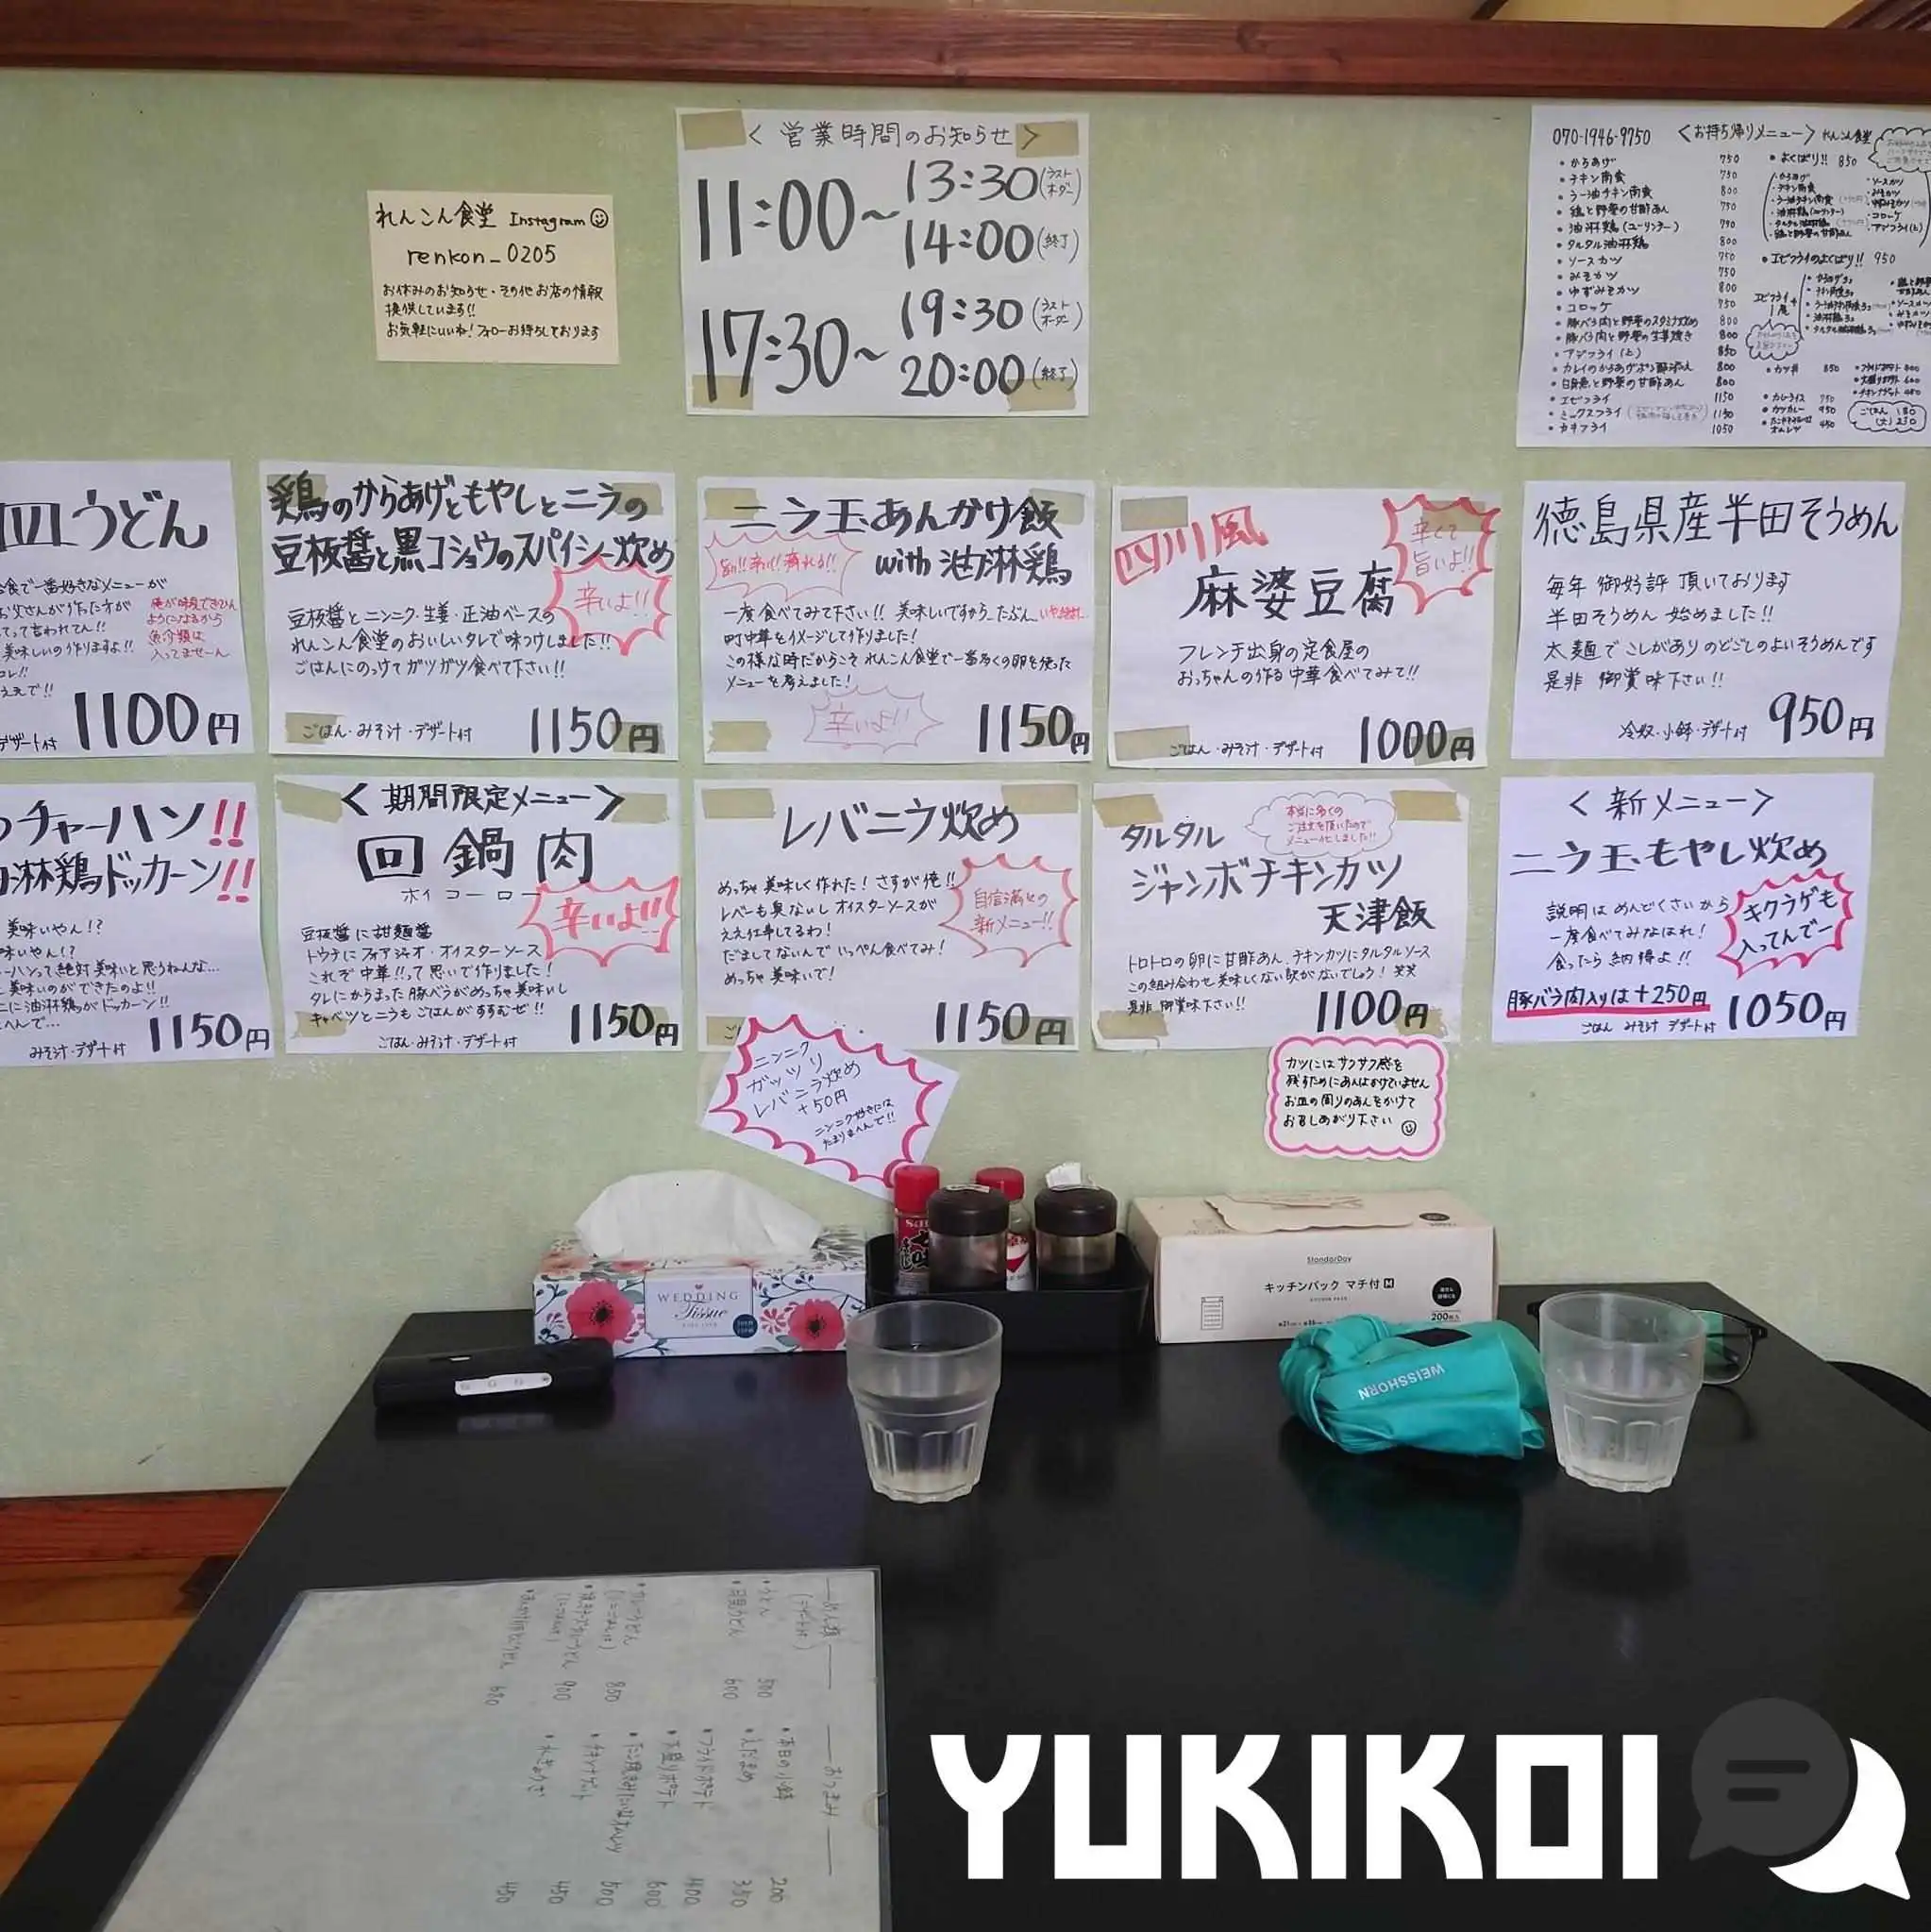 <営業時間のお知らせ>
11:00~13:30(ラストオーダー)
14:00(終了)
17:30~19:30(ラストオーダー)
20:00(終了)
れんこん食堂 Instagram
renkon_0205
お休みのお知らせ・その他お店の情報
提供しています!!
お気軽にいいね!フォローお待ちしております
070-1946-9750 <お持ち帰りメニュー> れんこん食堂
・からあげ 750
・チキン南蛮 750
・ラー油チキン南蛮 800
・鶏と野菜の甘酢あん 750
・油淋鶏(ユーリンチー) 750
・タルタル油淋鶏 800
・ソースカツ 750
・みそカツ 750
・ゆずみそカツ 800
・コロッケ 750
・豚バラ肉と野菜のスタミナ炒め 800
・豚バラ肉と野菜の生姜焼き 800
・アジフライ(2) 850
・カレイのからあげポン酢あん 800
・白身魚と野菜の甘酢あん 800
・エビフライ 1150
・ミックスフライ 1150
・カキフライ 1050
・よくばり!! 850
・エビフライのよくばり!! 950
・カツ丼 850
・カレーライス 750
・カツカレー 950
ごはん 180
(大) 230
皿うどん
食で一番好きなメニューが
お父さんが作った方が
って言われてん!!
美味しいの作りますよ!!
俺が味見できひん
ようになるから
魚介類は
入ってませーん
デザート付 1100円
鶏のからあげともやしとニラの
豆板醤と黒コショウのスパイシー炒め
辛いよ!!
豆板醤とニンニク・生姜・正油ベースの
れんこん食堂のおいしいタレで味つけしました!!
ごはんにのっけてガツガツ食べて下さい!!
ごはん・みそ汁・デザート付 1150円
ニラ玉あんかけ飯
with 油淋鶏
旨い!!辛い!痺れる!!
一度食べてみて下さい!! 美味しいですから…たぶん…いや絶対…
町中華をイメージして作りました!
この様な時だからこそれんこん食堂で一番多くの卵を使った
メニューを考えました!
辛いよ!!
1150円
四川風
麻婆豆腐
辛くて
旨いよ!!
フレンチ出身の定食屋の
おっちゃんの作る中華食べてみて!!
ごはん・みそ汁・デザート付 1000円
徳島県産半田そうめん
毎年御好評頂いております
半田そうめん始めました!!
太麺でこしがありのどごしのよいそうめんです
是非御賞味下さい!!
冷奴・小鉢・デザート付 950円
チャーハン!!
油淋鶏ドッカーン!!
美味いやん!?
味いやん!?
ーハンって絶対美味いと思うねんな…
美味いのができたのよ!!
に油淋鶏がドッカーン!!
へんで…
みそ汁・デザート付 1150円
<期間限定メニュー>
回鍋肉
ホイコーロー
辛いよ!!
豆板醤に甜麺醤
トウチにファアジャオ・オイスターソース
これぞ中華!!って思いで作りました!
タレにからまった豚バラがめっちゃ美味いし
キャベツとニラもごはんがすすむぜ!!
ごはん・みそ汁・デザート付 1150円
レバニラ炒め
めっちゃ美味しく作れた!さすが俺!!
レバーも臭ないしオイスターソースが
ええ仕事してるわ!
だましてないんでいっぺん食べてみ!
めっちゃ美味いで!
自信満々の
新メニュー!!
1150円
ニンニク
ガッツリ
レバニラ炒め
+50円
ニンニク好きには
たまりまへんで!!
タルタル
ジャンボチキンカツ
天津飯
本当に多くの
ご注文を頂いたので
メニュー化しました!!
トロトロの卵に甘酢あん、チキンカツにタルタルソース
この組み合わせ美味しくない訳がないでしょう!笑笑
是非御賞味下さい!!
1100円
カツにはサクサク感を
残すためにあんはかけていません
お皿の周りのあんをかけて
お召しあがり下さい
<新メニュー>
ニラ玉もやし炒め
説明はめんどくさいから
一度食べてみなはれ!
食ったら納得よ!!
キクラゲも
入ってんでー
豚バラ肉入りは+250円
ごはん みそ汁 デザート付 1050円
WEDDING
Tissue
StandarDay
キッチンパック マチ付 M
200枚入
WEISSHORN
めん類
(デザート付)
・うどん 500
・月見うどん 600
・カレーうどん 850
・焼きチーズカレーうどん 900
680
おつまみ
・本日の小鉢 200
・えだまめ 350
・フライドポテト 400
・大盛りポテト 600
500
・チキンナゲット 450
・水ぎょうざ 450
YUKIKOI